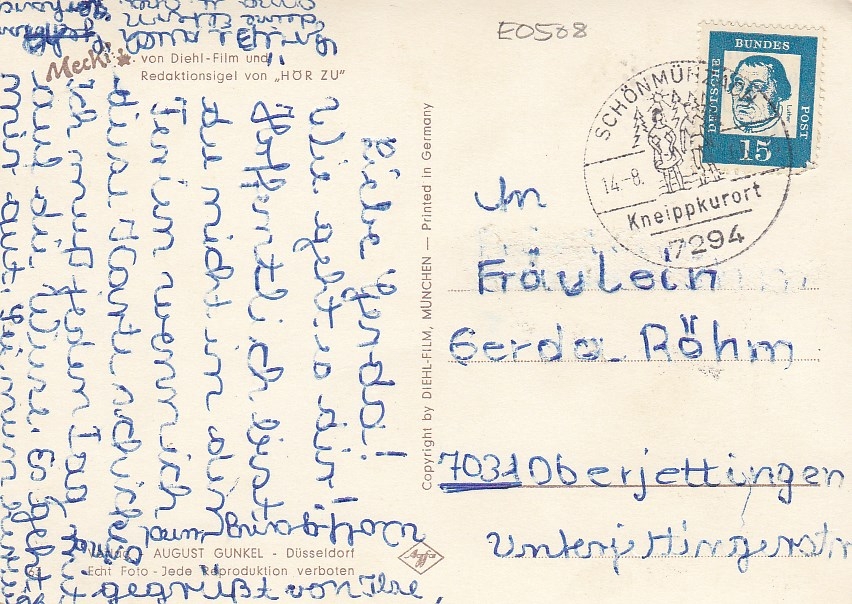 E0508
Mecki
von Diehl-Film und
Redaktionsigel von „HÖR ZU"
DEUTSCHE BUNDES POST
15
SCHÖNMÜNZACH
14.-8.
Kneippkurort
7294
Copyright by DIEHL-FILM, MÜNCHEN — Printed in Germany
An
Fräulein
Gerda Röhm
7031 Oberjettingen
Unterjettingerstr
Liebe Gerda!
Wie geht es dir!
Hoffentlich bist
du nicht in den
Ferien wenn ich
diese Karte schicke.
Ich muß jeden Tag mit
auf die Wiese. Es geht
mir gut.
gegrüßt von Ilse,
AUGUST GUNKEL - Düsseldorf
Echt Foto - Jede Reproduktion verboten
Agfa